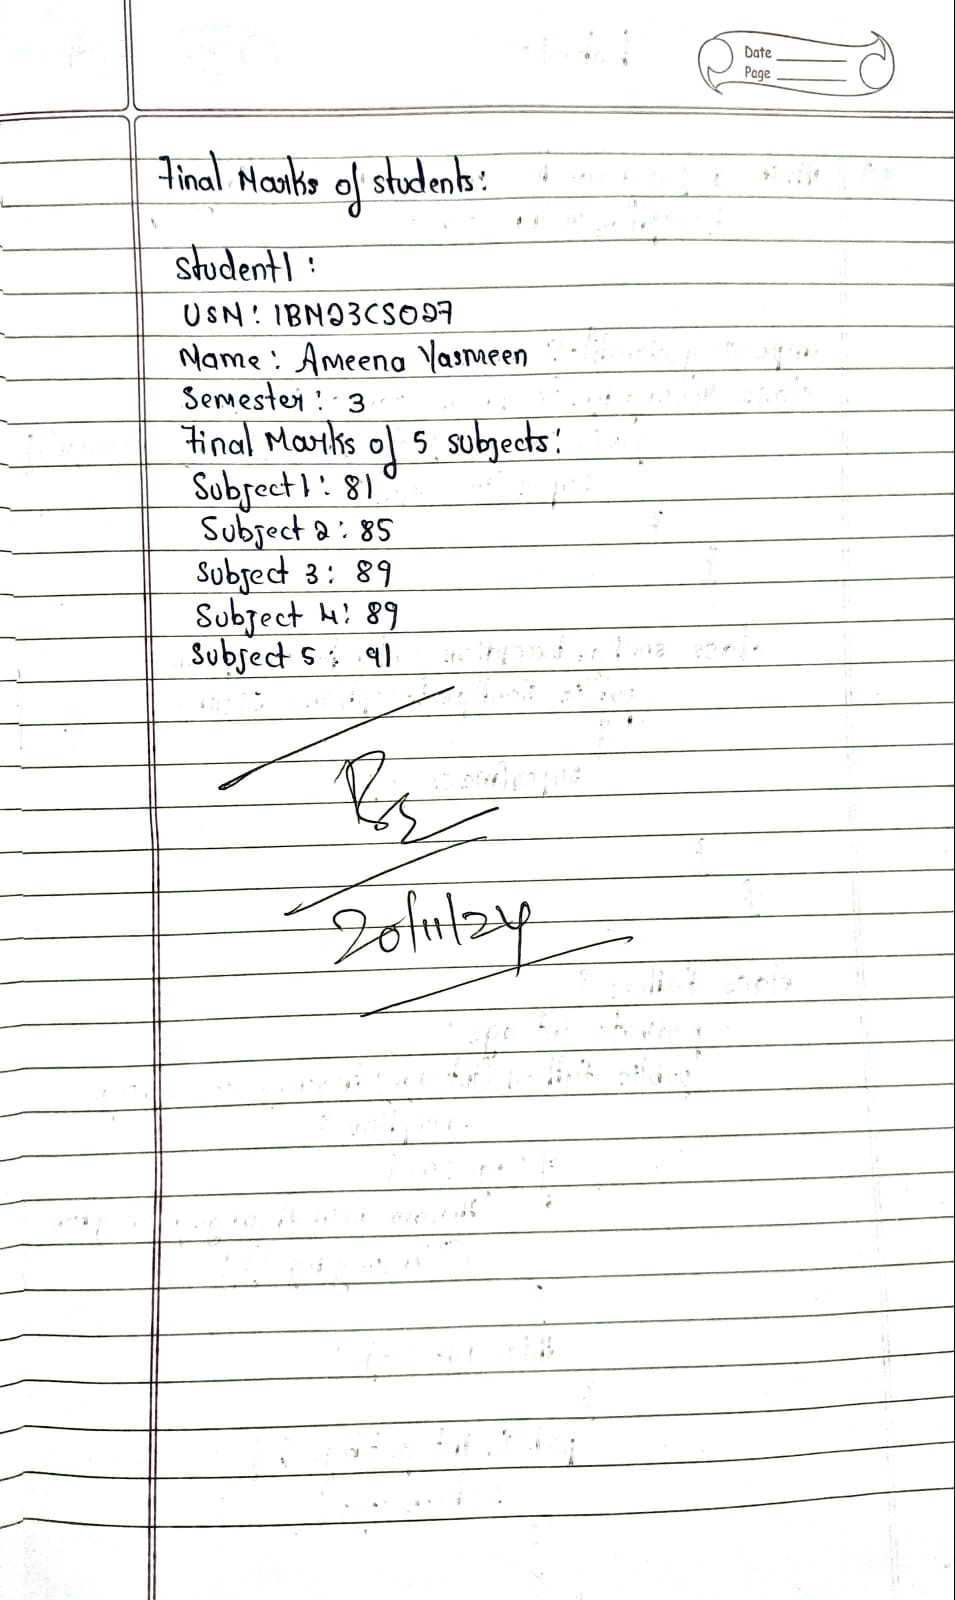 Date
Page
Final Marks of students:
Student1 :
USN: 1BM23CS027
Name: Ameena Yasmeen
Semester: 3
Final Marks of 5 subjects:
Subject1: 81
Subject 2: 85
Subject 3: 89
Subject 4: 89
Subject 5: 91
20/11/24